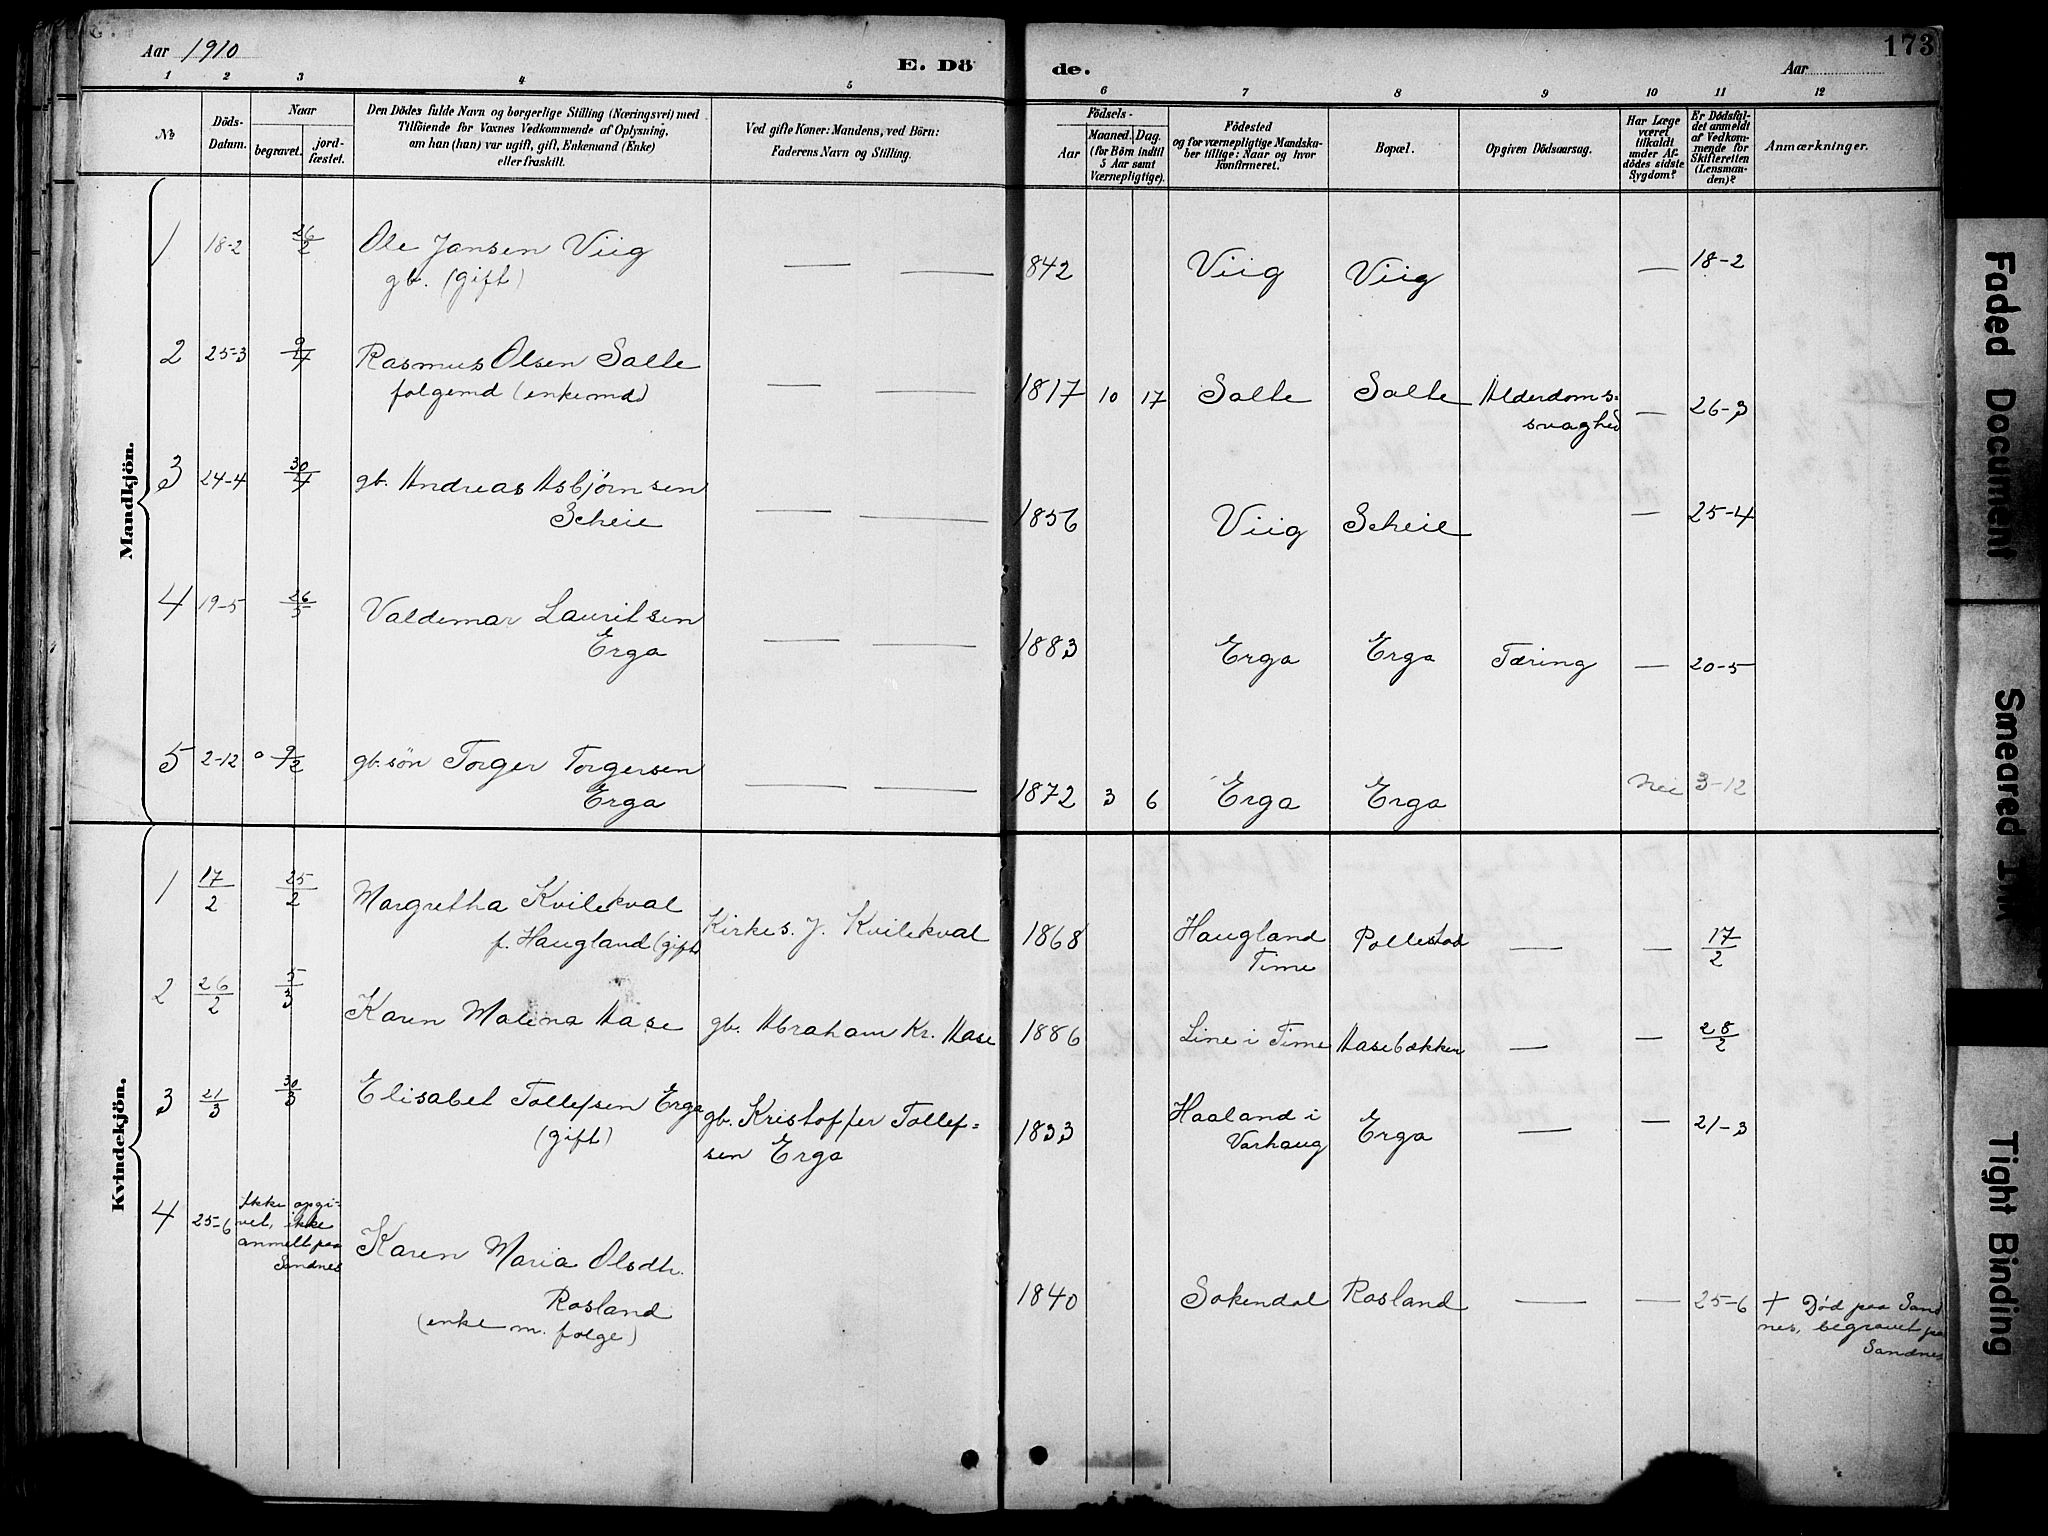 Aar 1910
E. Dö
de.
Aar
173
1 2 3 4 5 6 7 8 9 10 11 12
№
Döds-
Datum.
Naar
begravet.
jord-
fæstet.
Den Dödes fulde Navn og borgerlige Stilling (Næringsvei) med
Tilföiende for Voxnes Vedkommende af Oplysning,
om han (hun) var ugift, gift, Enkemand (Enke)
eller fraskilt.
Ved gifte Koner: Mandens, ved Börn:
Faderens Navn og Stilling.
Födsels-
Aar
Maaned. Dag.
(for Börn indtil
5 Aar samt
Værnepligtige).
Födested
og for værnepligtige Mandska-
ber tillige: Naar og hvor
konfirmeret.
Bopæl.
Opgiven Dödsaarsag.
Har Læge
været
tilkaldt
under Af-
dödes sidste
Sygdom?
Er Dödsfal-
det anmeldt
af Vedkom-
mende for
Skifteretten
(Lensman-
den)?
Anmærkninger.
Mandkjön.
1 18-2 26/2 Ole Jansen Viig — — 1842 Viig Viig — 18-2
gb. (gift)
2 25-3 9/4 Rasmus Olsen Salte — — 1817 10 17 Salte Salte Alderdoms- — 26-3
folgemd (enkemd) svaghed
3 24-4 30/4 gb. Andreas Asbjørnsen — — 1856 Viig Scheie — 25-4
Scheie
4 19-5 26/5 Valdemar Lauritsen — — 1883 Erga Erga Tæring — 20-5
Erga
5 2-12 9/12 gb. søn Torger Torgersen — — 1872 3 6 Erga Erga Nei 3-12
Erga
Kvindekjön.
1 17/2 25/2 Margretha Kvilekval Kirkes. J. Kvilekval 1868 Haugland Pollestad — — 17/2
f. Haugland (gift) Time
2 26/2 5/3 Karen Malena Aase gb. Abraham Kr. Aase 1886 Line i Time Aasebakken — — 28/2
3 21/3 30/3 Elisabet Tollefsen Erga gb. Kristoffer Tollef- 1833 Haaland i Erga — — 21-3
(gift) sen Erga Varhaug
4 25-6 Ikke opgi-
vet, ikke
anmelt paa
Sandnes
Karen Maria Olsdtr. 1840 Sokendal Rosland — — 25-6 + Død paa Sand
Rosland nes, begravet paa
(enke m. folge) Sandnes
Faded Document
Smeared Ink
Tight Binding